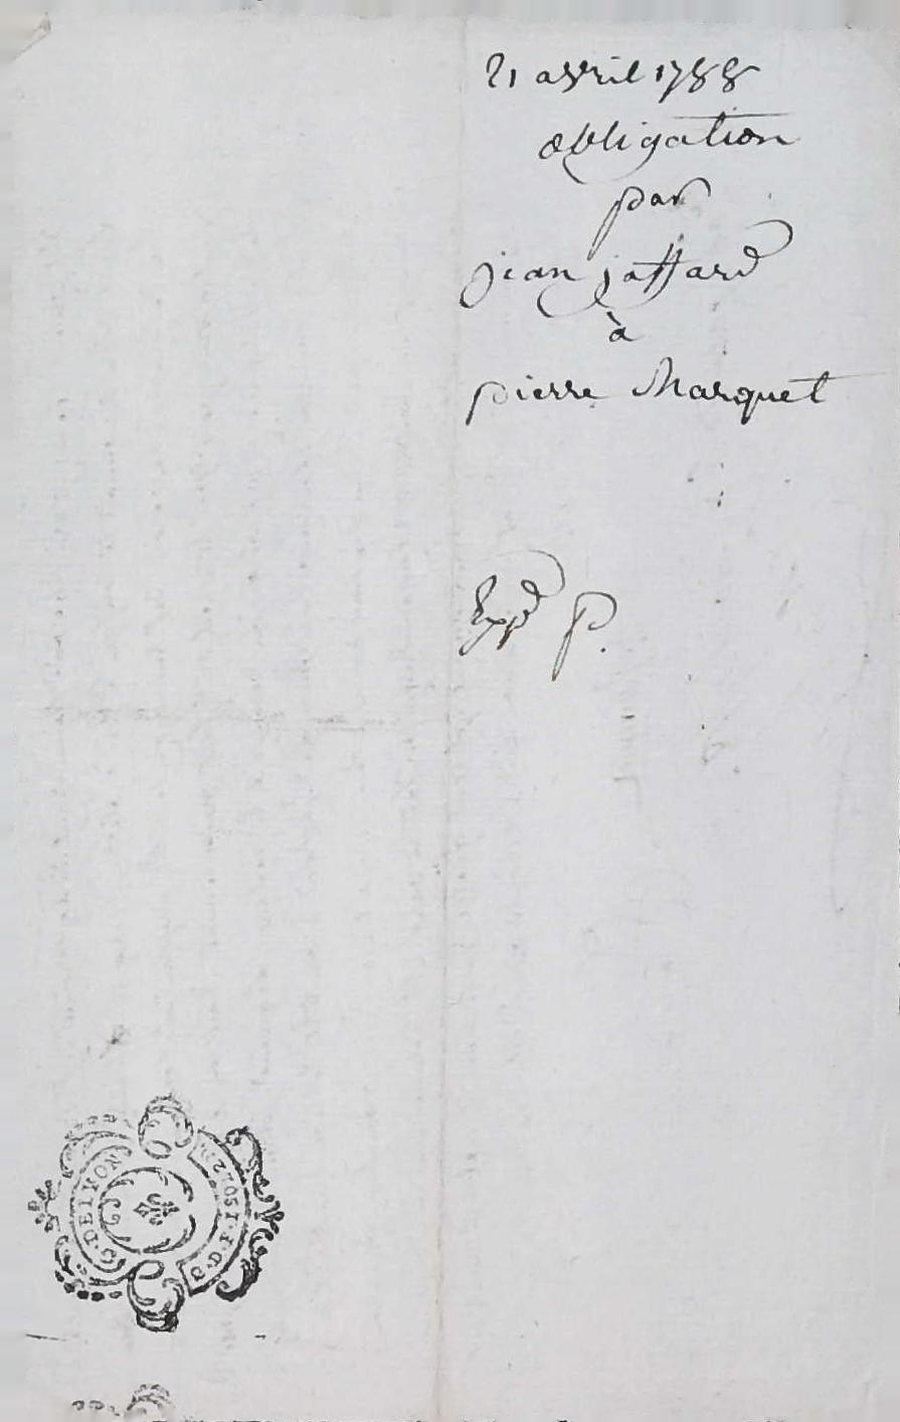 21 avril 1788
obligation
par
jean jaffard
à
pierre Marquet
Exp.d P.
G. DE MON